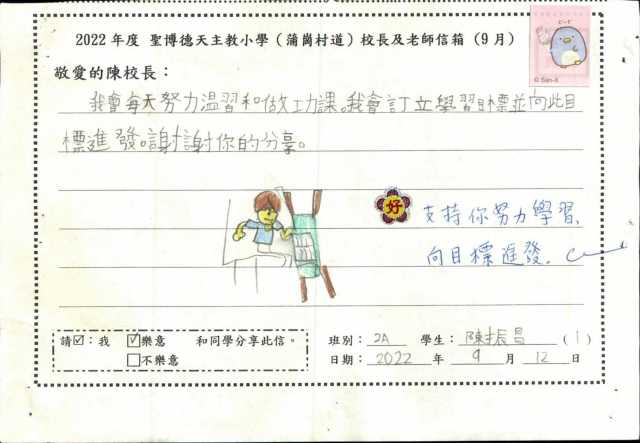 2022 年度 聖博德天主教小學（蒲崗村道）校長及老師信箱（9 月）
敬愛的陳校長：
我會每天努力温習和做功課。我會訂立學習目標並向此目
標進發。謝謝你的分享。
好
支持你努力學習，
向目標進發。
請☑：我 ☑樂意 和同學分享此信。
□不樂意
班別：2A 學生：陳振昌（1）
日期：2022 年 9 月 12 日